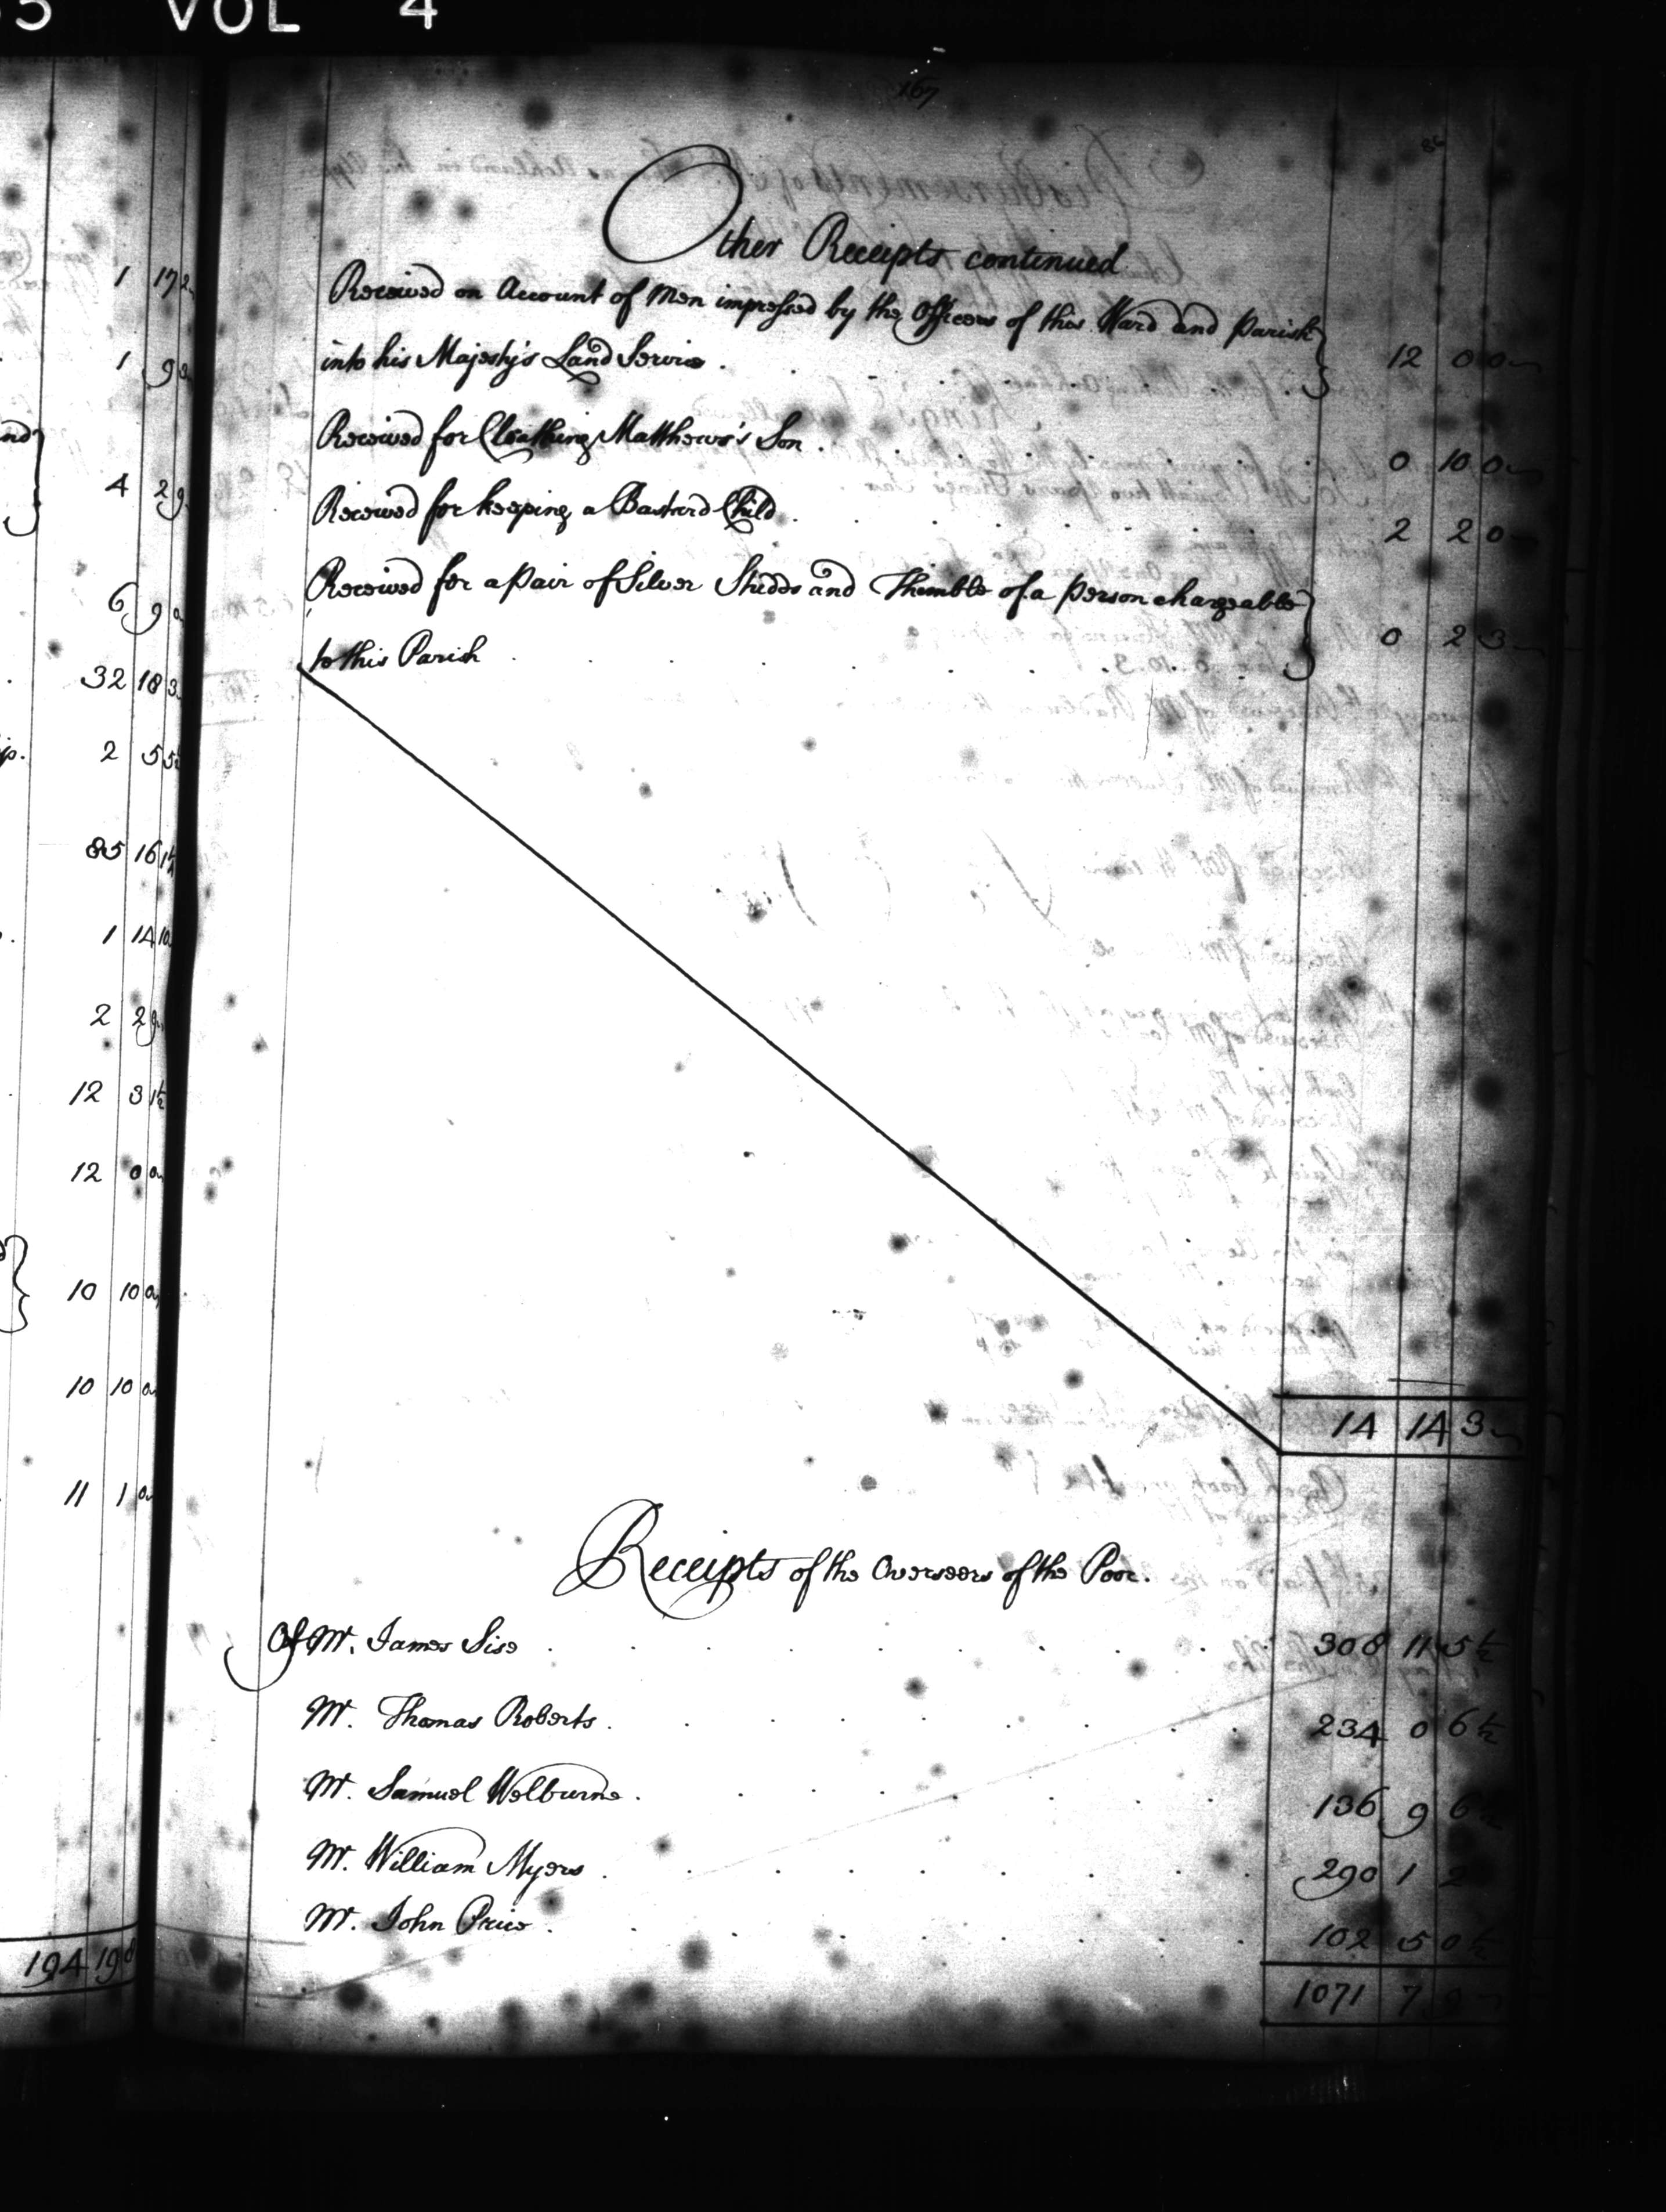 5 VOL 4
167
86
Other Receipts continued
Received on Account of Men impressed by the Officers of this Ward and Parish
into his Majesty's Land Service . 12 0 0
Received for Cloathing Matthews's Son . 0 10 0
Received for keeping a Bastard Child . 2 2 0
Received for a pair of Silver Studds and Thimble of a person chargeable
to this Parish 0 2 3
14 14 3
Receipts of the Overseers of the Poor.
Of Mr. James Sise 308 11 5½
Mr. Thomas Roberts. 234 0 6½
Mr. Samuel Welburne. 136 9 6½
Mr. William Myers . 290 1 2
Mr. John Price . 102 5 0½
1071 7 9
1 17 2
1 9
nd
4 2 9
6 9 0
32 18 3
p. 2 5 5½
85 16 1½
1 14 10
2 2 9
12 3 1½
12 0 0
10 10 0
10 10 0
11 1 0
194 19 8